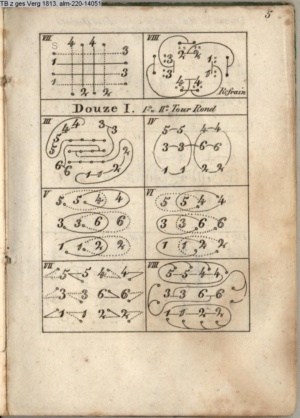 TB z ges Verg 1813. alm-220-14051
5
VII
VIII
4 4
S
3
1 3
1
2 2
2 2
3 1
3 1
4 4
Refrain
Douze I. Fa. IIa. Tour Rond
III
IV
4 4 3 3
5
5
6 6 2
1 1 2
5 5 4 4
3 3 6 6
1 1 2 2
V
VI
5 5 4 4
3 3 6 6
1 1 2 2
5 5 4 4
3 3 6 6
1 1 2 2
VII
VIII
5 5 4 4
3 3 6 6
1 1 2 2
5 5 4 4
3 3 6 6
1 1 2 2